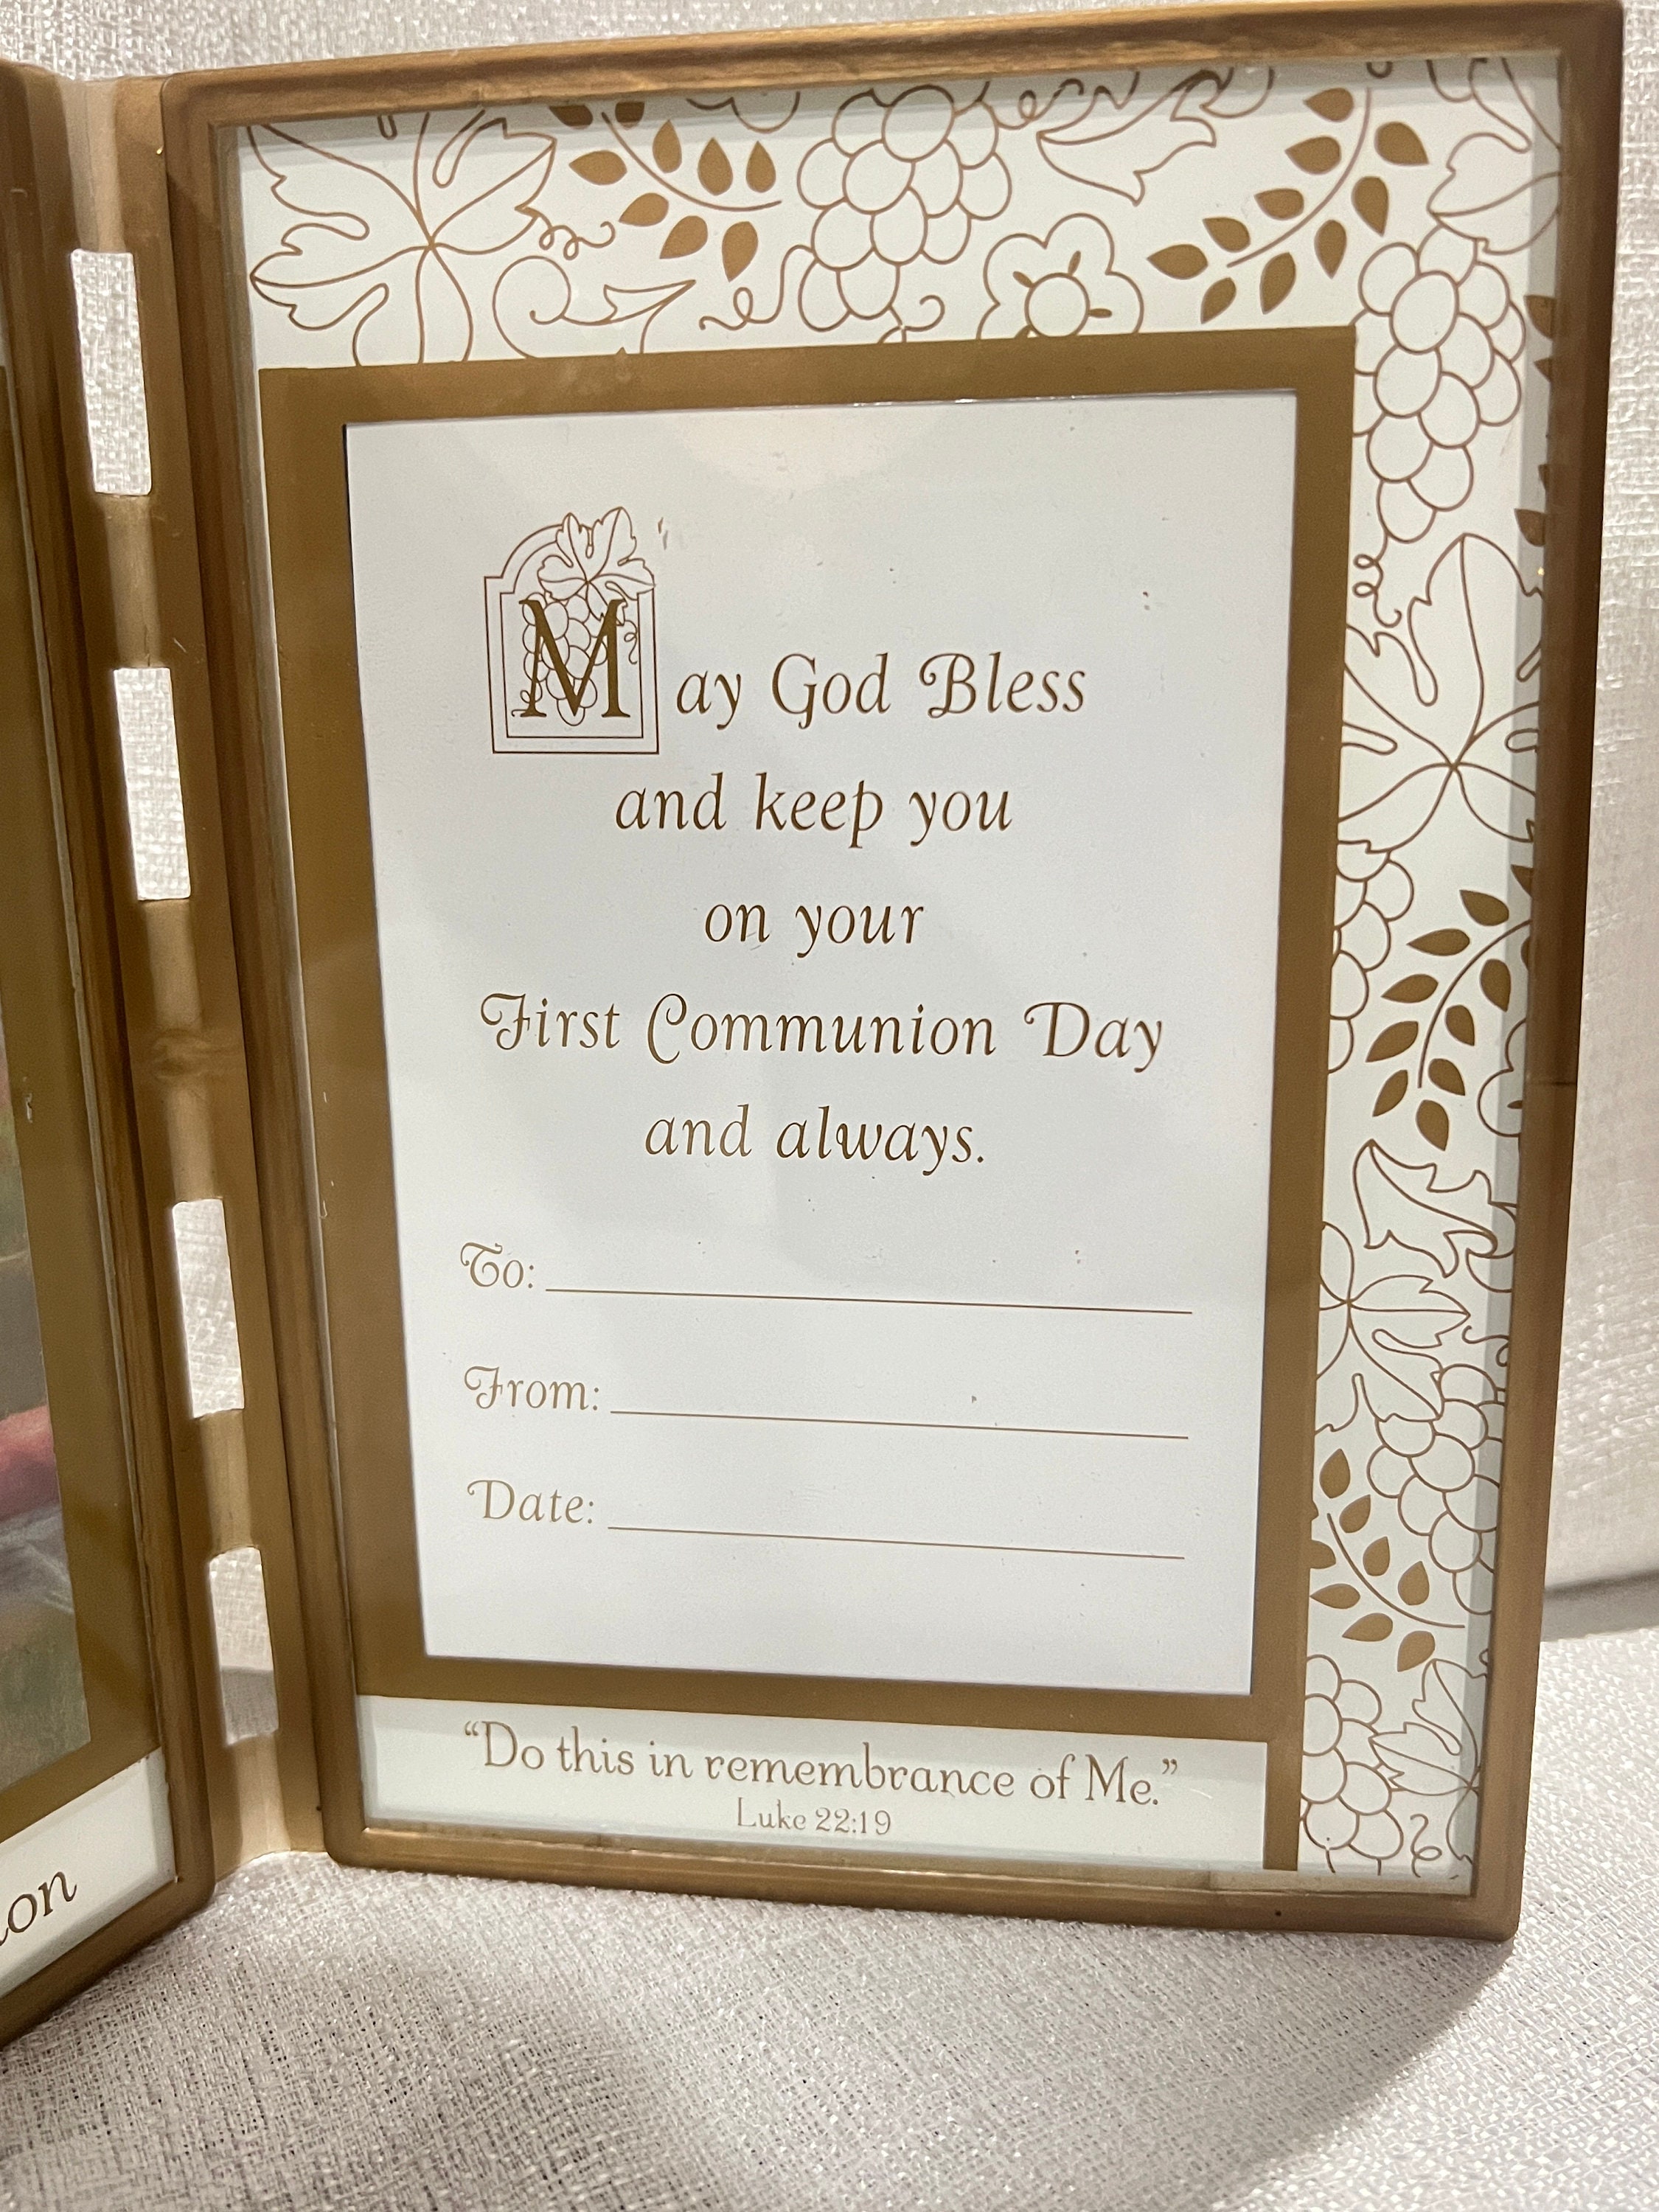 May God Bless
and keep you
on your
First Communion Day
and always.
To:
From:
Date:
“Do this in remembrance of Me.”
Luke 22:19